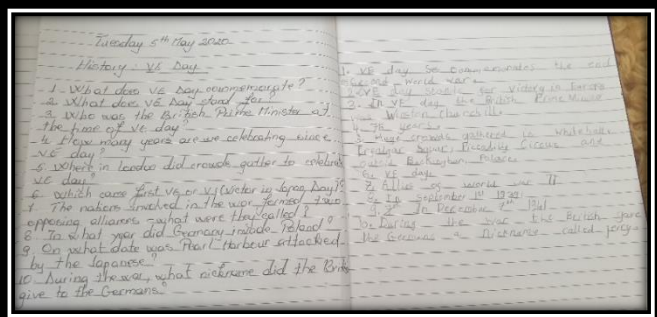 Tuesday 5th May 2020
History: VE Day
1. What does VE Day commemorate?
2. What does VE Day stand for
3. Who was the British Prime Minister at
the time of VE day
4. How many years are we celebrating since
VE day?
5. Where in London did crowds gather to celebrate
VE day?
6. Which came first VE or VJ (Victor in Japan Day)?
7. The nations involved in the war formed two
opposing alliances - what were they called?
8. In what year did Germany invade Poland?
9. On what date was Pearl Harbour attacked
by the Japanese?
10. During the war, what nickname did the Brits
give to the Germans
1. VE day commemorates the end
second world war.
VE day stands for victory in Europe
VE day the British Prime Minister
was Winston Churchill
years
crowds gathered in Whitehall
Trafalgar Square, Piccadilly Circus and
outside Buckingham Palace
6. VE day
7. Allies of world war II
8. In September 1st 1939
9. In December 7th 1941
10. During the war the British gave
the Germans a nickname called jerry